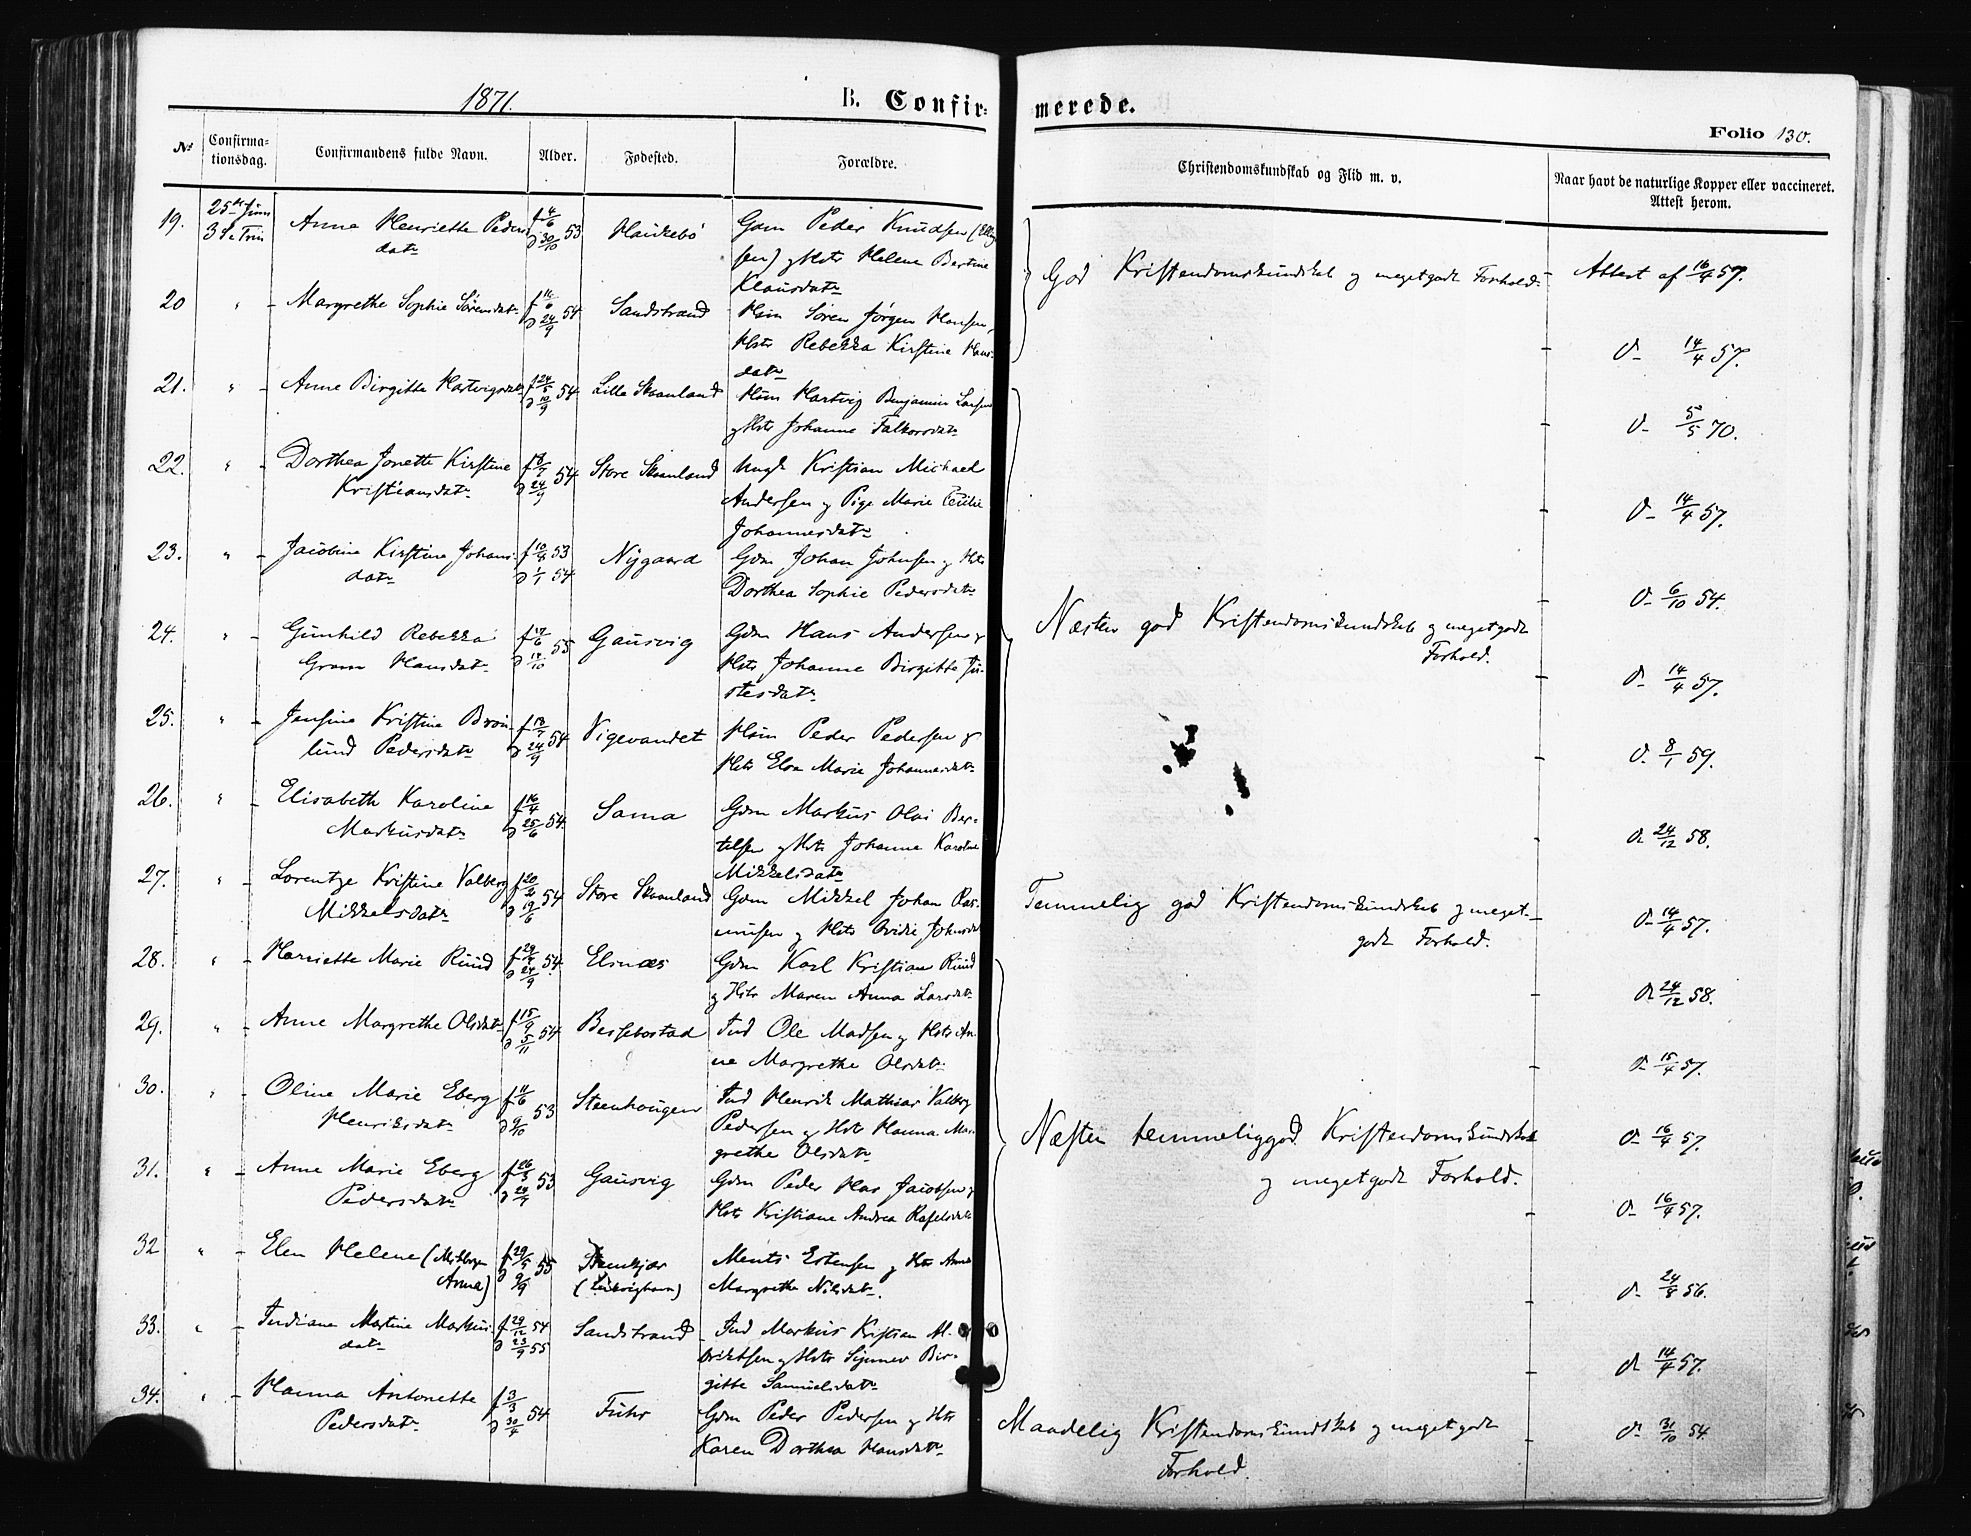 1871.
B. Confir-
merede.
Folio 130.
No
Confirma-
tionsdag.
Confirmandens fulde Navn.
Alder.
Fødested.
Forældre.
Christendomskundskab og Flid m. v.
Naar havt de naturlige Kopper eller vaccineret.
Attest herom.
19. 25de Juni
3 S. e Trin
Anne Henriette Peders
datr
f 4/6
d 30/10 53
Haukebø
Gdm Peder Knudsen (Elling
sen) og Hstr Helene Bertine
Klausdatr
God Kristendomskundskab og megetgodt Forhold.
Attest af 16/4 57.
20 " Margrethe Sophie Sørensdatr
d 24/9 54
Sandstrand
Hsm Søren Jørgen Hansen,
Hstr Rebekka Kirstine Hans
datr
d- 14/4 57.
21. " Anne Birgitte Hartvigsdatr
f 24/5
d 10/9 54
Lille Skaanland
Hsm Hartvig Benjamin Larsen
og Hstr Johanne Falkorsdatr
d- 5/5 70.
22. " Dorthea Jonette Kirstine
Kristiansdatr
f 8/7
d 24/9 54
Store Skaanland
Ungk Kristian Michael
Andersen og Pige Marie Cecilie
Johannesdatr
d- 14/4 57.
23. " Jacobine Kirstine Johans
datr
f 10/8 53
d 1/1 54
Nygaard
Gdm Johan Johnsen og Hstr
Dorthea Sophie Pedersdatr
d- 6/10 54.
24. " Gunhild Rebekka
Gram Hansdatr
f 17/6
d 14/10 55
Gausvig
Gdm Hans Andersen og
Hstr Johanne Birgitte Ju-
stesdatr
Næsten god Kristendomskundskab og megetgodt
Forhold.
d- 14/4 57.
25. " Jensine Kristine Bron
lund Pedersdatr
f 18/7
d 24/9 54
Vigevandet
Hsm Peder Pedersen og
Hstr Elen Marie Johannesdatr
d. 8/1 59.
26. " Elisabeth Karoline
Markusdatr
f 16/4
d 25/6 54.
Sama
Gdm Markus Olai Ber-
telsen og Hstr Johanna Karoline
Mikkelsdatr
d. 24/12 58.
27. " Lorentze Kristine Valberg
Mikkelsdatr
d 19/6 54
Store Skaanland
Gdm Mikkel Johan Ras-
musen og Hstr Ovidie Johnsdatr
Temmelig god Kristendomskundskab og meget-
godt Forhold.
d- 14/4 57.
28. " Harriette Marie Ruud
d 24/9 54.
Elsnæs
Gdm Karl Kristian Ruud
og Hstr Maren Anna Larsdatr
d 24/12 58.
29. " Anne Margrethe Olsdatr
f 15/9
d 5/11 54
Bessebostad
Ind Ole Madsen og Hstr An
ne Margrethe Olsdatr
d- 15/4 57.
30. " Oline Marie Eberg
Henriksdatr
f 11/6
d 9/10 53
Steenhougen
Ind Henrik Mathias Valberg
Pedersen og Hstr Hanna Mar
grethe Olsdatr
Næsten temmeliggod Kristendomskundskab
og megetgodt Forhold.
d- 16/4 57.
31. " Anne Marie Eberg
Pedersdatr
f 26/5
53
Gausvig
Gdm Peder Jacobsen og
Hstr Kristiane Andrea Rafelsdatr
d- 16/4 57.
32 " Elen Helene
Anna)
f 29/5
d 9/9 55
Steenkjær
Ments Estensen og Hstr Anne
Margrethe Nilsdatr.
d- 24/8 56.
33. " Indiane Martine Markus
datr
f 29/12 54
d 23/9 55
Sandstrand
Ind Markus Kristian H-
og Hstr Bir-
gitte Samuelsdatr
d 14/4 57.
34. " Hanna Antonette
Pedersdatr
f 3/3
d 30/4 54
Fuhr
Gdm Peder Pedersen og Hstr
Karen Dorthea Hansdatr
Maadelig Kristendomskundskab og megetgodt
Forhold.
d. 31/10 54.